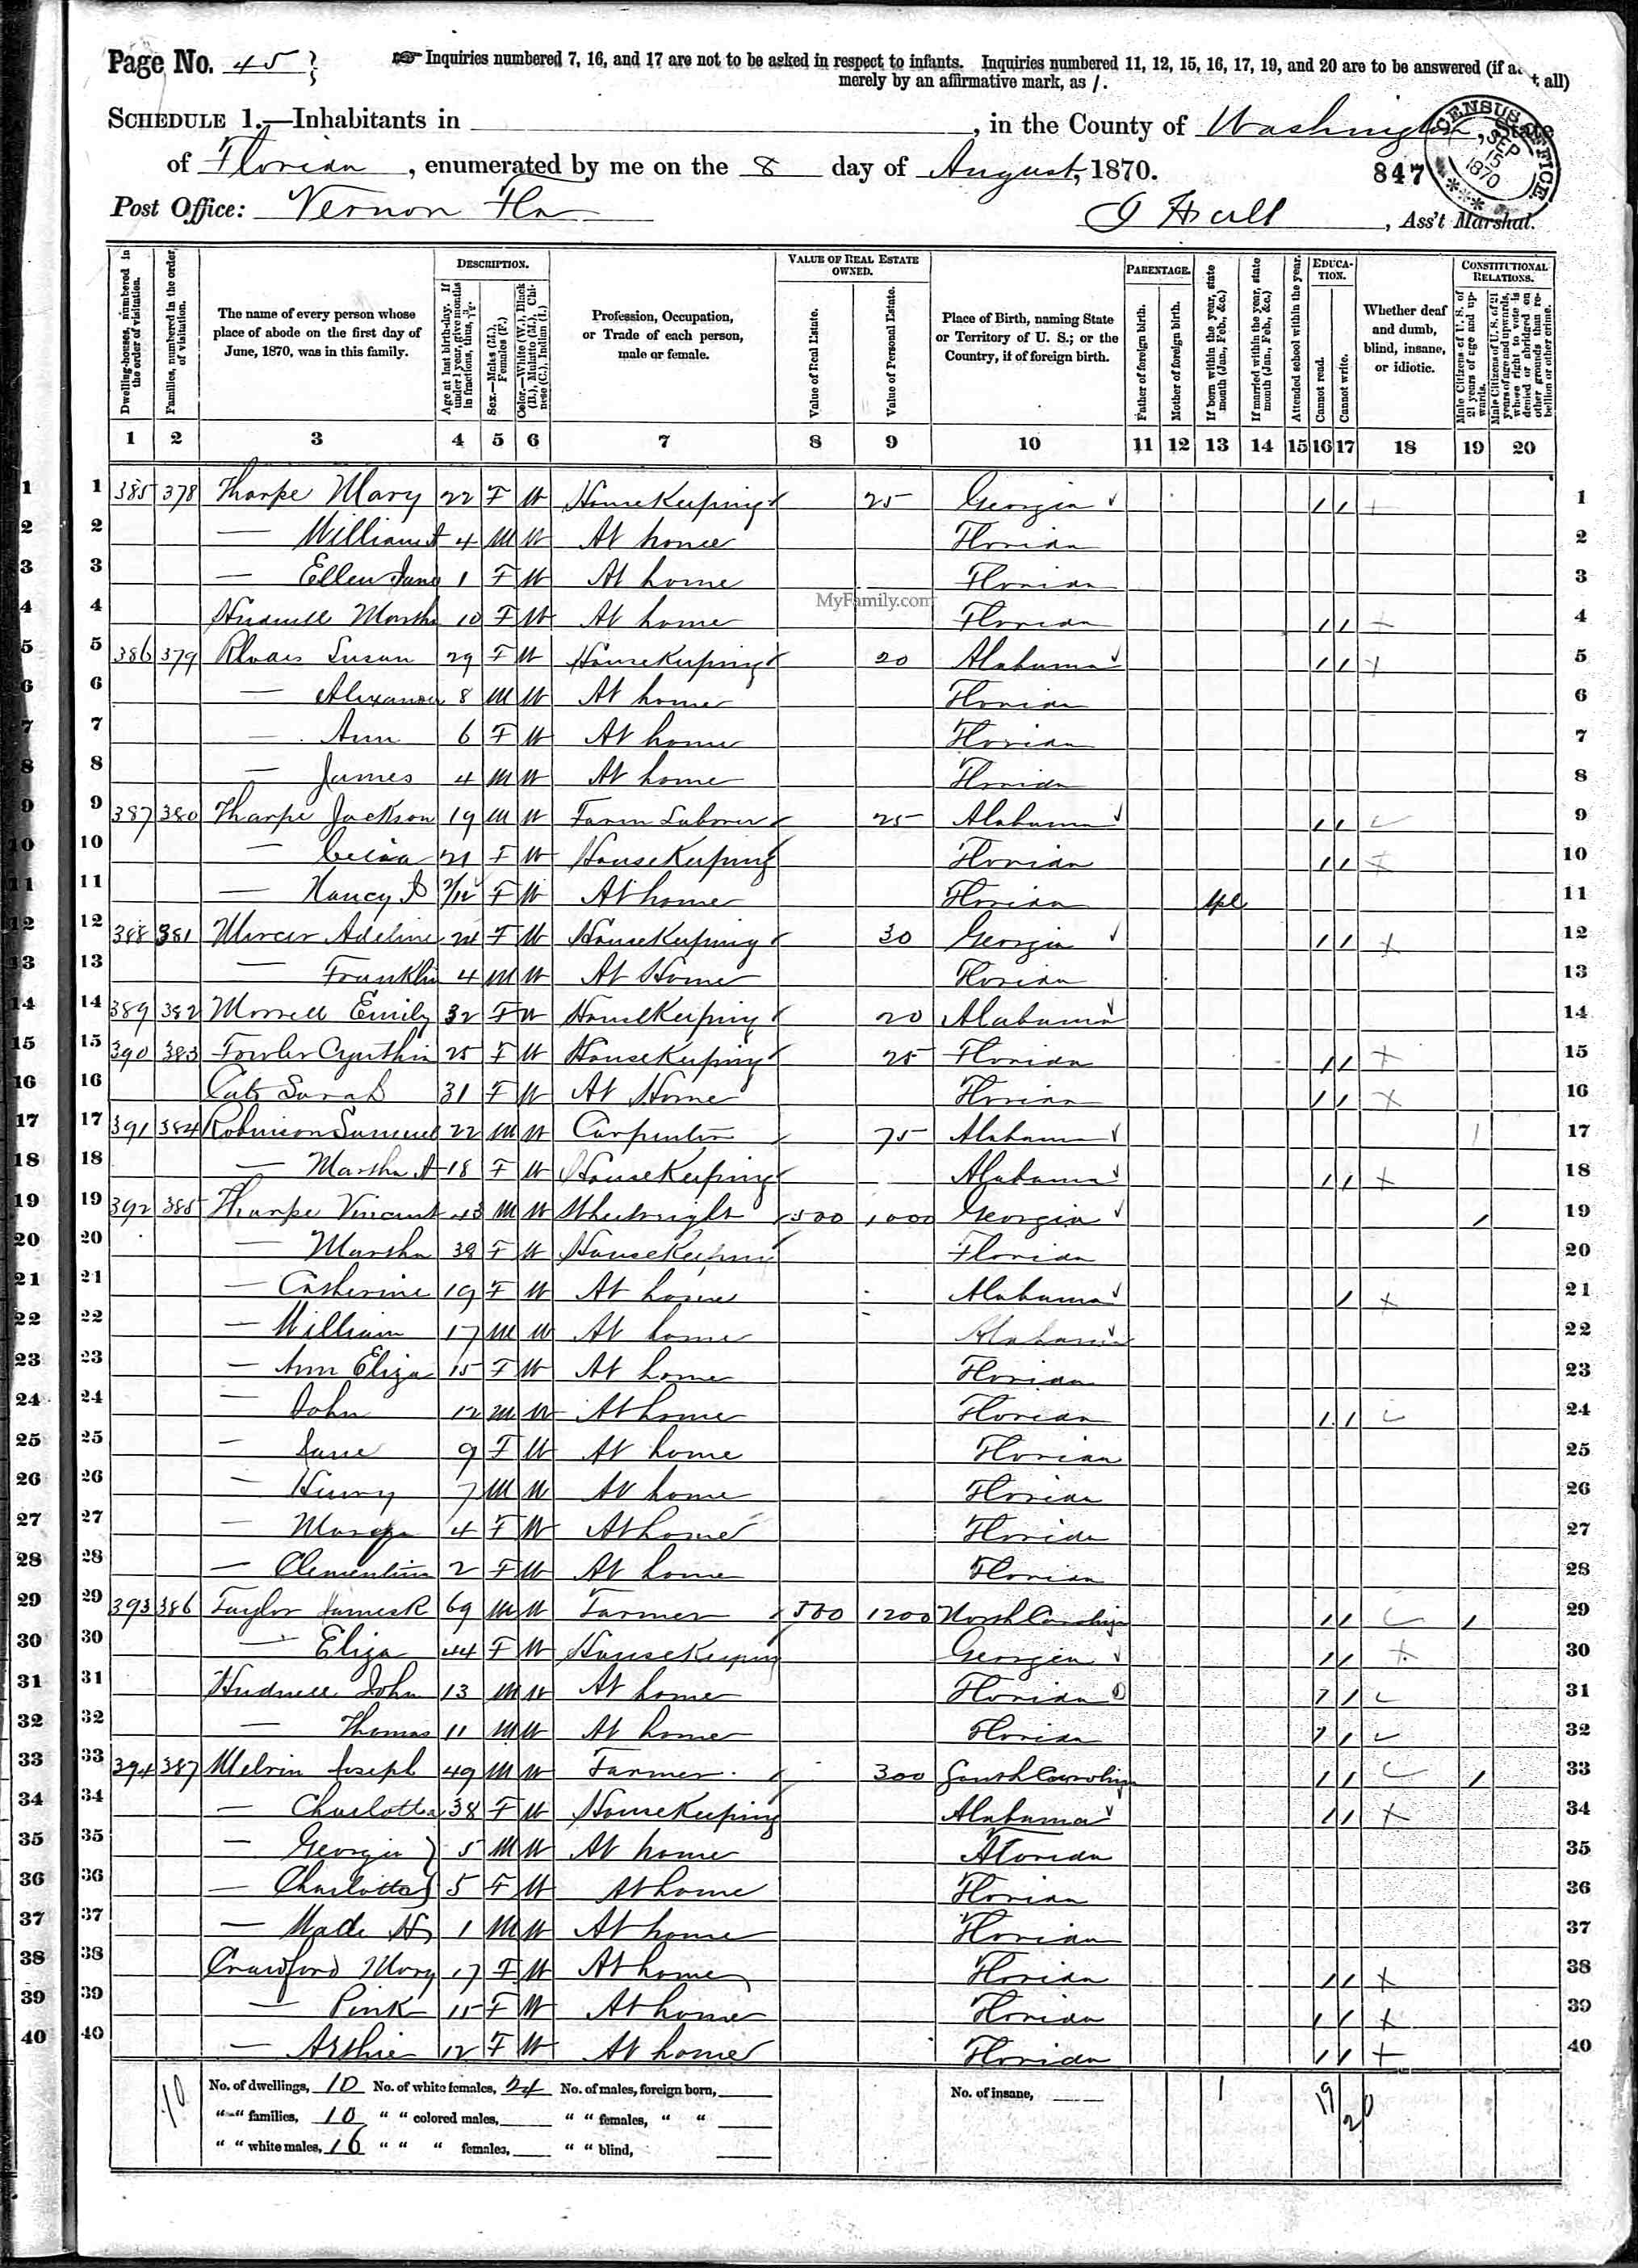 Page No. 45
Inquiries numbered 7, 16, and 17 are not to be asked in respect to infants. Inquiries numbered 11, 12, 15, 16, 17, 19, and 20 are to be answered (if at all)
merely by an affirmative mark, as /.
SCHEDULE 1.—Inhabitants in , in the County of Washington, State
of Florida, enumerated by me on the 8 day of August, 1870.
847
CENSUS OFFICE SEP 15 1870
Post Office: Vernon Fla
J Hall, Ass't Marshal.
Dwelling-houses, numbered in the order of visitation.
Families, numbered in the order of visitation.
The name of every person whose place of abode on the first day of June, 1870, was in this family.
DESCRIPTION.
Age at last birth-day. If under 1 year, give months in fractions, thus, 3/12.
Sex.—Males (M.), Females (F.)
Color.—White (W.), Black (B.), Mulatto (M.), Chinese (C.), Indian (I.)
Profession, Occupation, or Trade of each person, male or female.
VALUE OF REAL ESTATE OWNED.
Value of Real Estate.
Value of Personal Estate.
Place of Birth, naming State or Territory of U. S.; or the Country, if of foreign birth.
PARENTAGE.
Father of foreign birth.
Mother of foreign birth.
If born within the year, state month (Jan., Feb., &c.)
If married within the year, state month (Jan., Feb., &c.)
Attended school within the year.
EDUCATION.
Cannot read.
Cannot write.
Whether deaf and dumb, blind, insane, or idiotic.
CONSTITUTIONAL RELATIONS.
Male Citizens of U. S. of 21 years of age and upwards.
Male Citizens of U. S. of 21 years of age and upwards, whose right to vote is denied or abridged on other grounds than rebellion or other crime.
1 2 3 4 5 6 7 8 9 10 11 12 13 14 15 16 17 18 19 20
1 385 378 Tharpe Mary 22 F W House Keeping 25 Georgia / / 1
2 — William A 4 M W At home Florida 2
3 — Ellen Jane 1 F W At home Florida 3
MyFamily.com
4 Martha 10 F W At home Florida / / 4
5 386 379 Susan 29 F W House Keeping 20 Alabama / / 5
6 — Alexander 8 M W At home Florida 6
7 — Ann 6 F W At home Florida 7
8 — James 4 M W At home Florida 8
9 387 380 Tharpe Jackson 19 M W Farm Laborer 25 Alabama / / 9
10 — 21 F W House Keeping Florida / / 10
11 — Nancy F W At home Florida Apl 11
12 388 381 Mercer Adeline F W House Keeping 30 Georgia / / 12
13 — Franklin 4 M W At Home Florida 13
14 389 382 Morrell Emily 32 F W House Keeping 20 Alabama 14
15 390 383 Fowler Cynthia 25 F W House Keeping 25 Florida / / 15
16 Sarah 31 F W At Home Florida / / 16
17 391 384 Robinson Samuel 22 M W Carpenter 75 Alabama / 17
18 — Martha A 18 F W House Keeping Alabama / / 18
19 392 385 Tharpe Vincent 43 M W Wheelwright 500 1000 Georgia / 19
20 — Martha 38 F W House Keeping Florida 20
21 — Catherine 19 F W At home Alabama / 21
22 — William 17 M W At home Alabama 22
23 — Ann Eliza 15 F W At home Florida 23
24 — John 12 M W At home Florida / / 24
25 — Jane 9 F W At home Florida 25
26 — Henry 7 M W At home Florida 26
27 — 4 F W At home Florida 27
28 — Clementine 2 F W At home Florida 28
29 393 386 Taylor James R 69 M W Farmer 500 1200 North Carolina / / / 29
30 — Eliza 44 F W House Keeping Georgia / / 30
31 John 13 M W At home Florida / / 31
32 — Thomas 11 M W At home Florida / / 32
33 394 387 Melvin Joseph 49 M W Farmer 300 South Carolina / / / 33
34 — Charlotte 38 F W House Keeping Alabama / / 34
35 — Georgia 5 M W At home Florida 35
36 — Charlotte 5 F W At home Florida 36
37 — H 1 M W At home Florida 37
38 Crawford Mary 17 F W At home Florida / / 38
39 — Pink 15 F W At home Florida / / 39
40 — 12 F W At home Florida / / 40
10
No. of dwellings, 10 No. of white females, 24 No. of males, foreign born, No. of insane, 1 19 20
" " families, 10 " " colored males, " " females, " "
" " white males, 16 " " " females, " " blind,